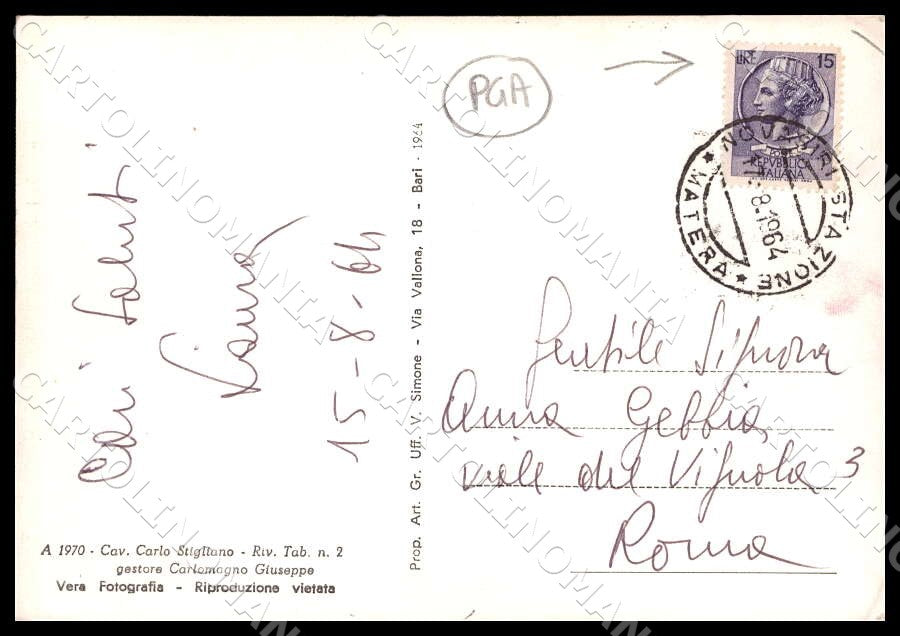 Cari Saluti
Laura
15-8-64
A 1970 - Cav. Carlo Stigliano - Riv. Tab. n. 2
gestore Carlomagno Giuseppe
Vera Fotografia - Riproduzione vietata
Prop. Art. Gr. Uff. V. Simone - Via Vallona, 18 - Bari - 1964
PGA
LIRE 15
POSTE
REPVBBLICA
ITALIANA
NOVA SIRI STAZIONE
* MATERA *
8-1964
Gentile Signora
Anna Gebbia
viale del Vignola 3
Roma
CARTOLINOMANIA